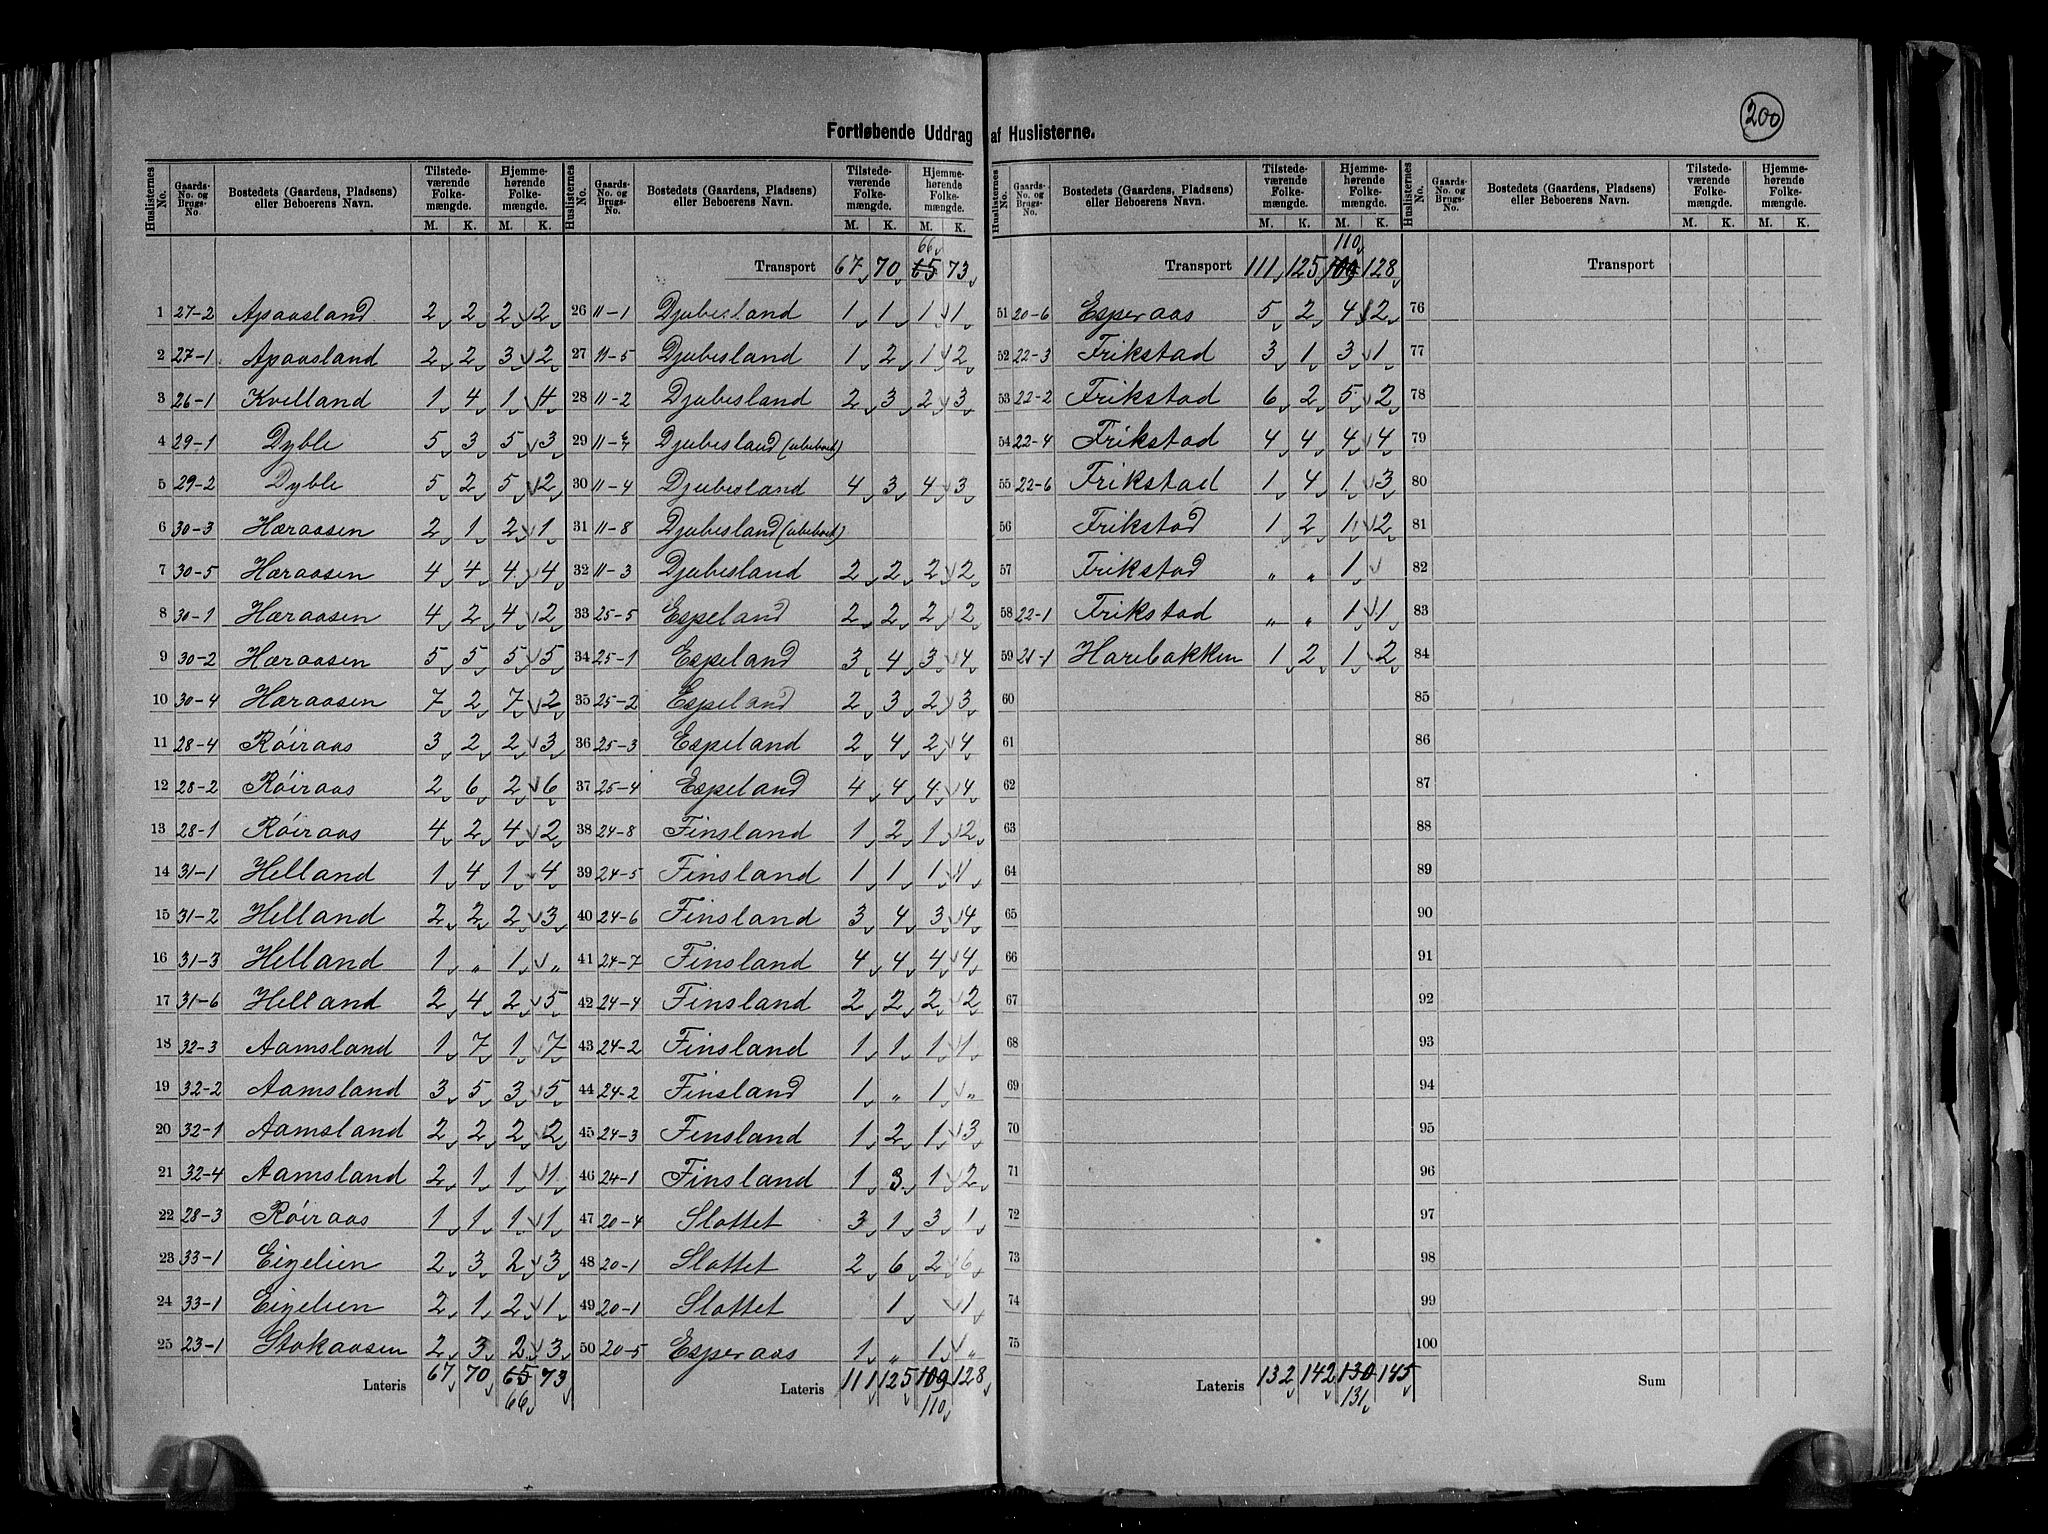 200
Fortløbende Uddrag af Huslisterne.
Huslisternes No. | Gaards-No. og Brugs-No. | Bostedets (Gaardens, Pladsens) eller Beboerens Navn. | Tilstedeværende Folkemængde. M. K. | Hjemmehørende Folkemængde. M. K.
1 27-2 Apaasland 2 2 2 2
2 27-1 Apaasland 2 2 3 2
3 26-1 Kvelland 1 4 1 4
4 29-1 Dyble 5 3 5 3
5 29-2 Dyble 5 2 5 2
6 30-3 Hæraasen 2 1 2 1
7 30-5 Hæraasen 4 4 4 4
8 30-1 Hæraasen 4 2 4 2
9 30-2 Hæraasen 5 5 5 5
10 30-4 Hæraasen 7 2 7 2
11 28-4 Røiraas 3 2 2 3
12 28-2 Røiraas 2 6 2 6
13 28-1 Røiraas 4 2 4 2
14 31-1 Helland 1 4 1 4
15 31-2 Helland 2 2 2 3
16 31-3 Helland 1 " 1 "
17 31-6 Helland 2 4 2 5
18 32-3 Aamsland 1 7 1 7
19 32-2 Aamsland 3 5 3 5
20 32-1 Aamsland 2 2 2 2
21 32-4 Aamsland 2 1 1 1
22 28-3 Røiraas 1 1 1 1
23 33-1 Eigelien 2 3 2 3
24 33-1 Eigelien 2 1 2 1
25 23-1 Stokaasen 2 3 2 3
Lateris 67 70 65 73
66
Huslisternes No. | Gaards-No. og Brugs-No. | Bostedets (Gaardens, Pladsens) eller Beboerens Navn. | Tilstedeværende Folkemængde. M. K. | Hjemmehørende Folkemængde. M. K.
66
Transport 67 70 65 73
26 11-1 Djubesland 1 1 1 1
27 11-5 Djubesland 1 2 1 2
28 11-2 Djubesland 2 3 2 3
29 Djubesland (ubeboet)
30 11-4 Djubesland 4 3 4 3
31 11-8 Djubesland (ubeboet)
32 11-3 Djubesland 2 2 2 2
33 25-5 Espeland 2 2 2 2
34 25-1 Espeland 3 4 3 4
35 25-2 Espeland 2 3 2 3
36 25-3 Espeland 2 4 2 4
37 25-4 Espeland 4 4 4 4
38 24-8 Finsland 1 2 1 2
39 24-5 Finsland 1 1 1 1
40 24-6 Finsland 3 4 3 4
41 24-7 Finsland 4 4 4 4
42 24-4 Finsland 2 2 2 2
43 24-2 Finsland 1 1 1 1
44 24-2 Finsland 1 " 1 "
45 24-3 Finsland 1 2 1 3
46 24-1 Finsland 1 3 1 2
47 20-4 Slottet 3 1 3 1
48 20-1 Slottet 2 6 2 6
49 20-1 Slottet 1 1
50 20-5 Esperaas 1 " 1 "
Lateris 111 125 109 128
110
Huslisternes No. | Gaards-No. og Brugs-No. | Bostedets (Gaardens, Pladsens) eller Beboerens Navn. | Tilstedeværende Folkemængde. M. K. | Hjemmehørende Folkemængde. M. K.
110
Transport 111 125 109 128
51 20-6 Esperaas 5 2 4 2
52 22-3 Frikstad 3 1 3 1
53 22-2 Frikstad 6 2 5 2
54 22-4 Frikstad 4 4 4 4
55 22-6 Frikstad 1 4 1 3
56 Frikstad 1 2 1 2
57 Frikstad " " 1
58 22-1 Frikstad " " 1 1
59 21-1 Harebakken 1 2 1 2
60
61
62
63
64
65
66
67
68
69
70
71
72
73
74
75
Lateris 132 142 130 145
131
Huslisternes No. | Gaards-No. og Brugs-No. | Bostedets (Gaardens, Pladsens) eller Beboerens Navn. | Tilstedeværende Folkemængde. M. K. | Hjemmehørende Folkemængde. M. K.
Transport
76
77
78
79
80
81
82
83
84
85
86
87
88
89
90
91
92
93
94
95
96
97
98
99
100
Sum